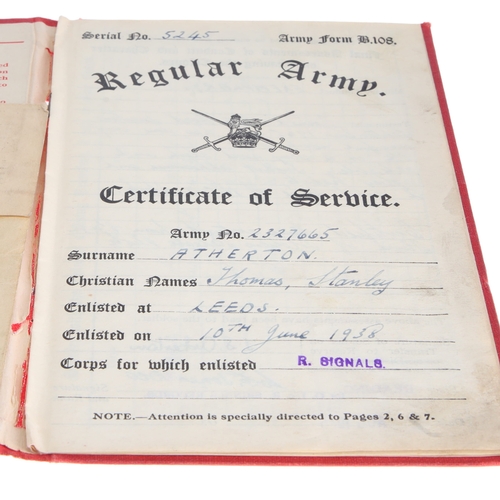 Serial No. 5245 Army Form B.108.
Regular Army.
Certificate of Service.
Army No. 2327665
Surname ATHERTON.
Christian Names Thomas, Stanley
Enlisted at LEEDS.
Enlisted on 10TH June 1938
Corps for which enlisted R. SIGNALS.
NOTE.—Attention is specially directed to Pages 2, 6 & 7.